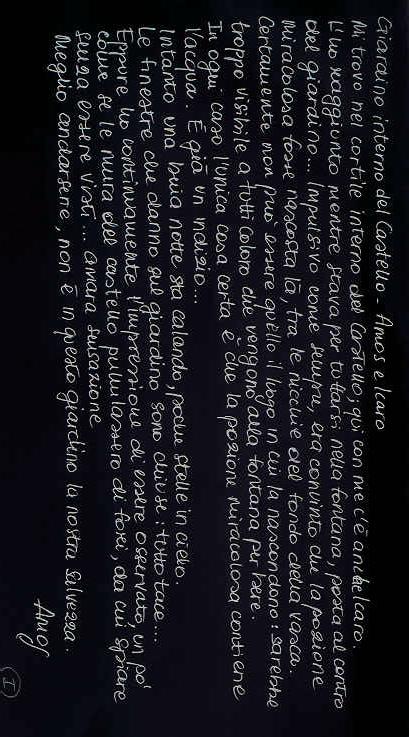 Giardino interno del Castello - Amos e Icaro
Mi trovo nel cortile interno del Castello, qui con me c'è anche Icaro.
L'ho raggiunto mentre stava per tuffarsi nella fontana, posta al centro
del giardino... Impulsivo come sempre, era convinto che la pozione
miracolosa fosse nascosta là, tra le nicchie del fondo della vasca.
Certamente non può essere quello il luogo in cui la nascondono: sarebbe
troppo visibile a tutti coloro che vengono alla fontana per bere.
In ogni caso l'unica cosa certa è che la pozione miracolosa contiene
l'acqua. È già un indizio...
Intanto una buia notte sta calando, poche stelle in cielo.
Le finestre che danno sul giardino sono chiuse: tutto tace...
Eppure ho continuamente l'impressione di essere osservato, un po'
come se le mura del castello pullulassero di fori, da cui spiare
senza essere visti... amara sensazione
Meglio andarsene, non è in questo giardino la nostra salvezza.
Amos
I